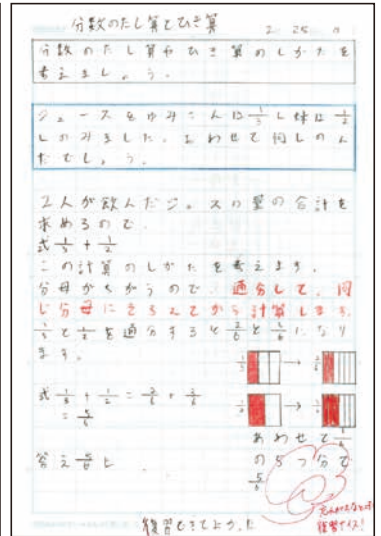 分数のたし算とひき算 2 25
分数のたし算やひき算のしかたを
考えましょう。
ジュースをゆみさんは1/3L 妹は1/2
Lのみました。あわせて何Lのん
だでしょう。
2人が飲んだジュースの量の合計を
求めるので
式 1/3 + 1/2
この計算のしかたを考えます。
分母がちがうので 通分して、同
じ分母にそろえてから計算します。
1/3と1/2を通分すると2/6と3/6になり
ます。
1/3 → 2/6
式 1/3 + 1/2 = 2/6 + 3/6
= 5/6
1/2 → 3/6
あわせて1/6
の5つ分で
5/6
答え 5/6L
復習できてよかった
復習ナイス!